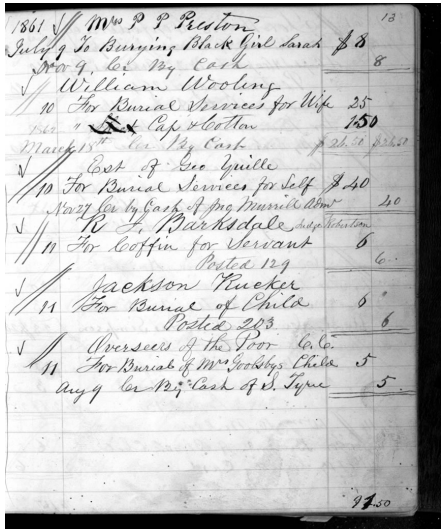 13
1861 Mrs P P Preston
July 9 To Burying Black Girl Sarah $ 8
Nov 9 Cr By Cash 8
William Wooling
10 For Burial Services for Wife 25
" Cap & Cotton 1.50
March 18th Cr By Cash $26.50 $26.50
Est of Geo Yuille
10 For Burial Services for Self $ 40
Nov 27 Cr by Cash of Jno Murrill Admr 40
R. J. Barksdale Judge Robertson
11 For Coffin for Servant 6
Posted 129 6
Jackson Rucker
11 For Burial of Child 6
Posted 203 6
Overseers of the Poor C.C.
11 For Burial of Mrs Goolsbys Child 5
Aug 9 Cr By Cash of S. Tyree 5
91.50